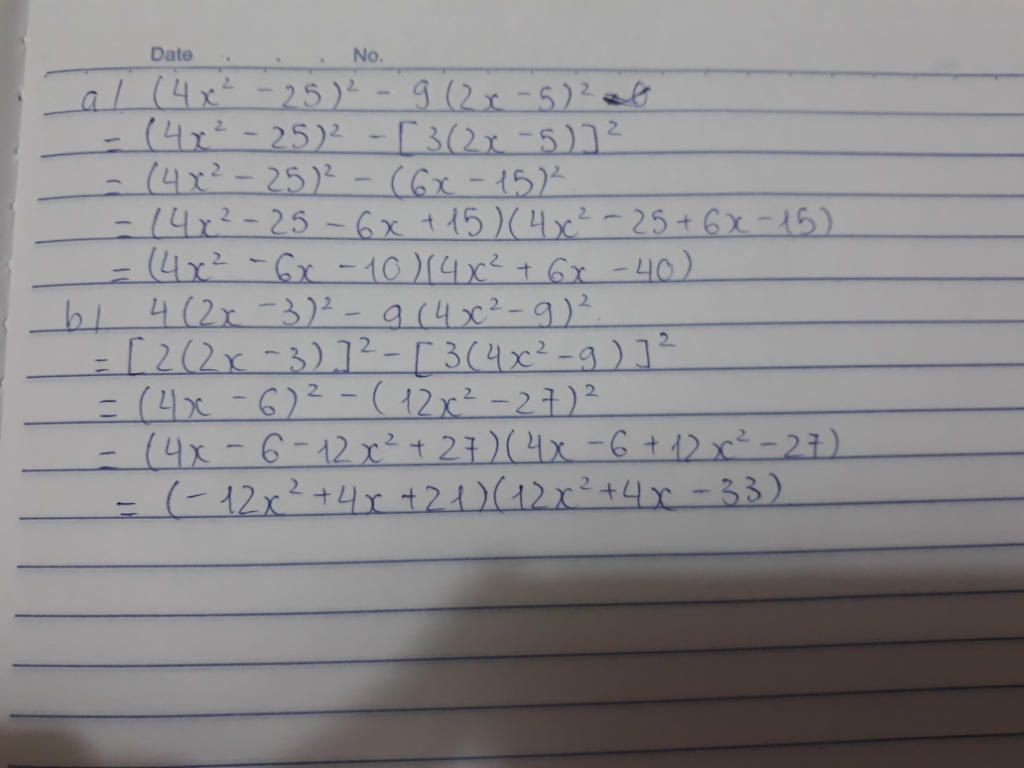 Date . . . No.
a/ (4x² - 25)² - 9(2x - 5)²
= (4x² - 25)² - [3(2x - 5)]²
= (4x² - 25)² - (6x - 15)²
= (4x² - 25 - 6x + 15)(4x² - 25 + 6x - 15)
= (4x² - 6x - 10)(4x² + 6x - 40)
b/ 4(2x - 3)² - 9(4x² - 9)²
= [2(2x - 3)]² - [3(4x² - 9)]²
= (4x - 6)² - (12x² - 27)²
= (4x - 6 - 12x² + 27)(4x - 6 + 12x² - 27)
= (-12x² + 4x + 21)(12x² + 4x - 33)